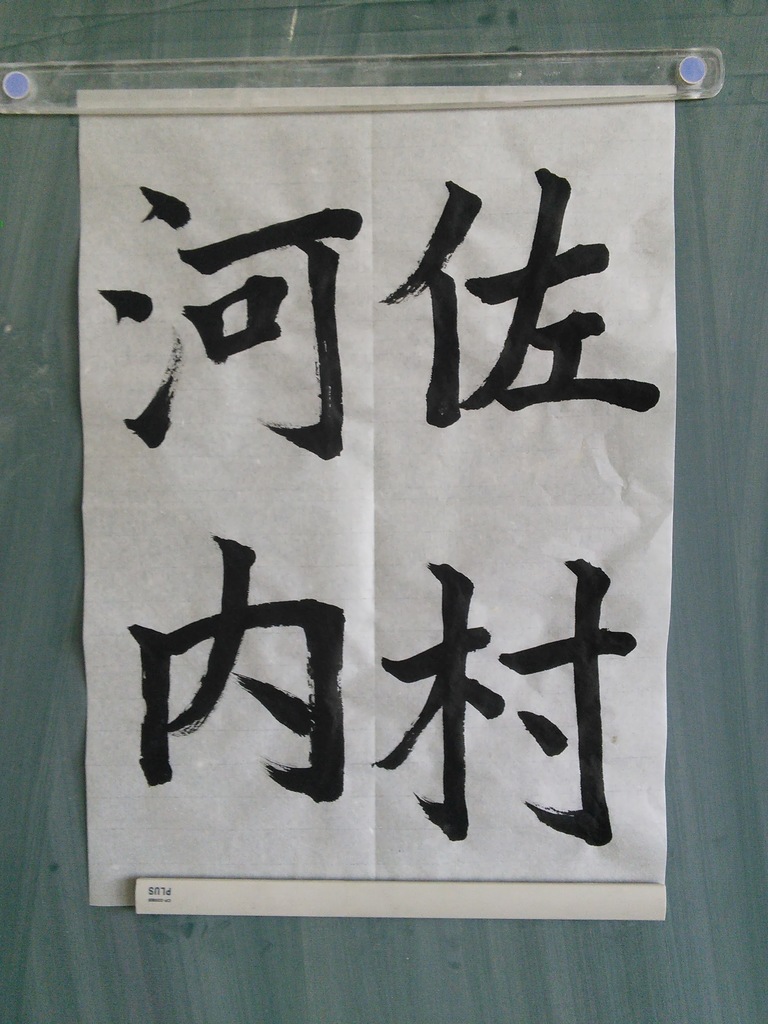 佐村
河内
PLUS